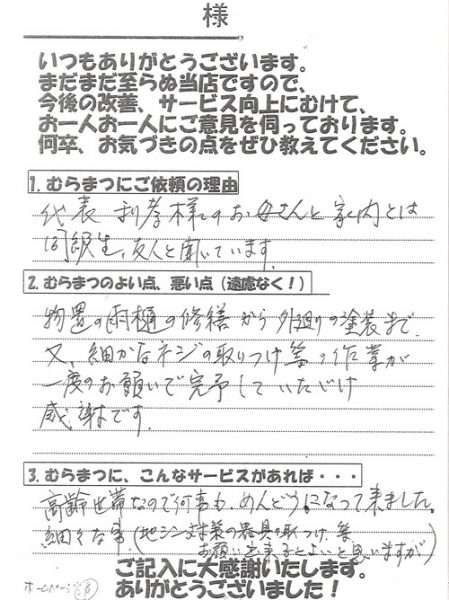 様
いつもありがとうございます。
まだまだ至らぬ当店ですので、
今後の改善、サービス向上にむけて、
お一人お一人にご意見を伺っております。
何卒、お気づきの点をぜひ教えてください。
1. むらまつにご依頼の理由
代表 利孝様のお母さんと家内とは
同級生、友人と聞いています.
2. むらまつのよい点、悪い点（遠慮なく！）
物置の雨樋の修繕から外廻りの塗装まで.
又、細かなネジの取りつけ等、作業が
一度のお願いで完予していただけ
感謝です.
3. むらまつに、こんなサービスがあれば・・・
高齢世帯なので何事も、めんどうになって来ました。
細々な事、(地シン対策の器具の取つけ、等
お願い出来るとよいと思いますが)
ご記入に大感謝いたします。
ありがとうございました！
ホームページ 済